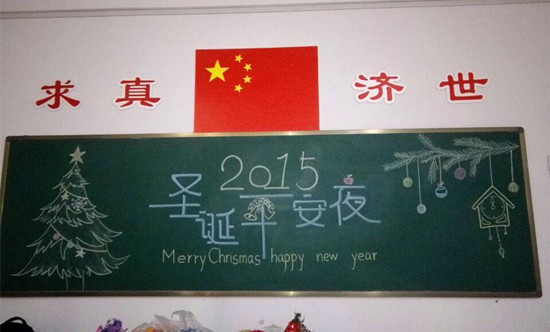 求真 济世
2015
圣诞平安夜
Merry Chrismas happy new year